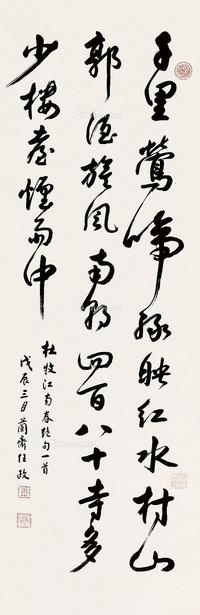 千里莺啼绿映红水村山
郭酒旗风南朝四百八十寺多
少楼台烟雨中
杜牧江南春绝句一首
戊辰三月兰斋任政